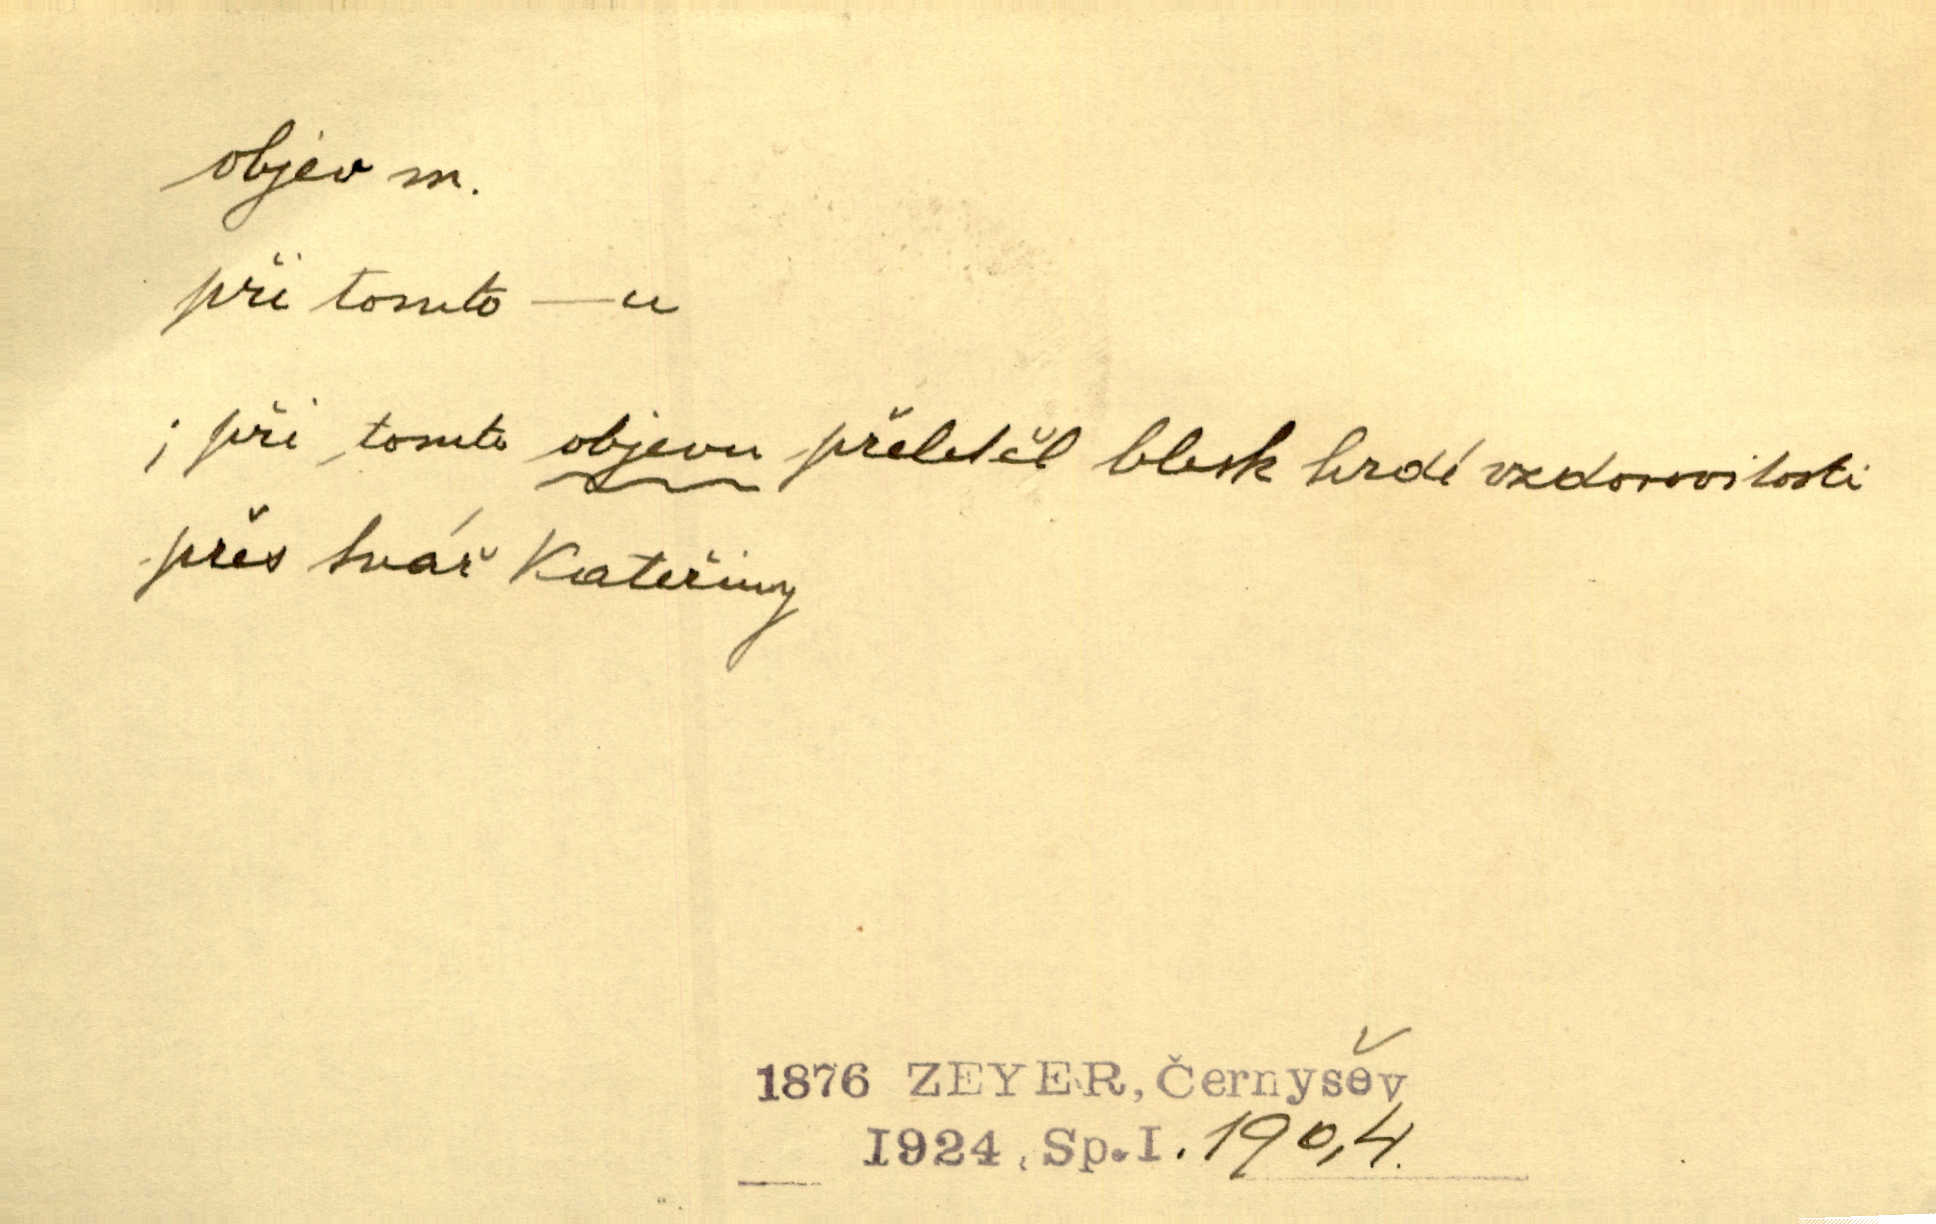 objev m.
při tomto —u
; při tomto objevu přeletěl blesk hrdé vzdorovitosti
přes tvář Kateřiny
1876 ZEYER, Černyšev
1924, Sp.I. 190,4.